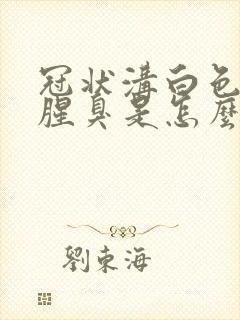 冠状溝白色
腥臭是怎麼
劉東海